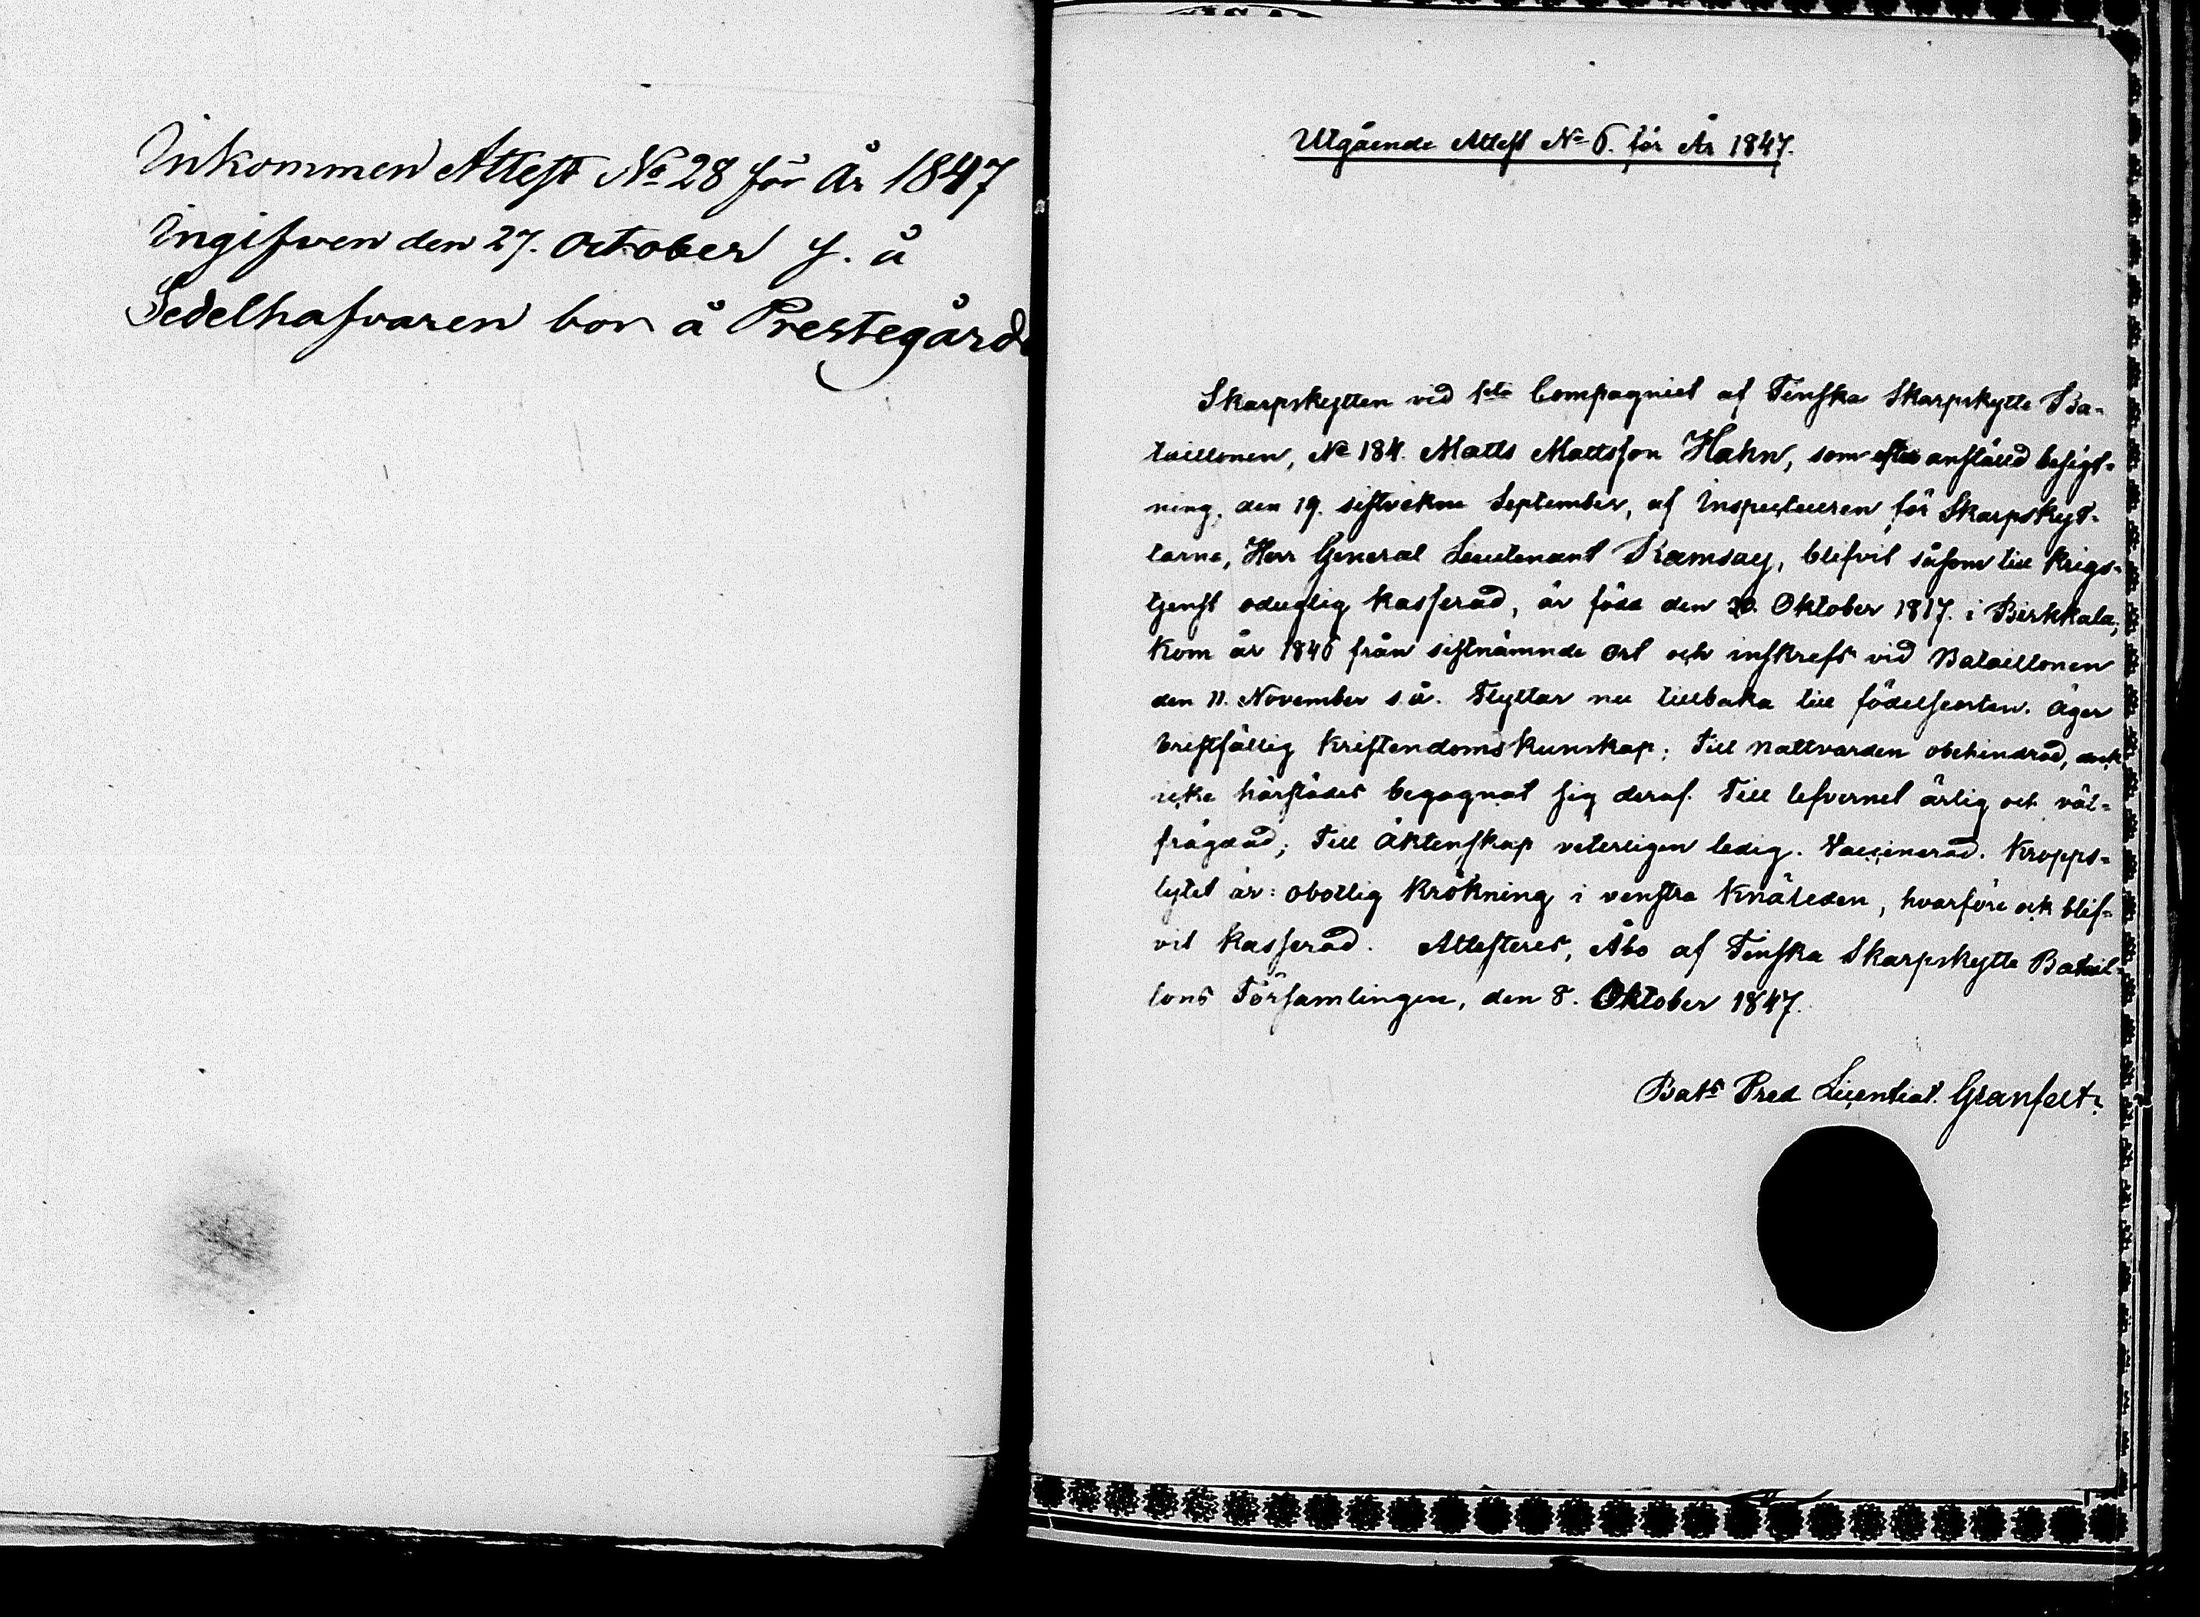 Inkommen Attest No 28 för År 1847
Ingifven den 27. October s. å
Sedelhafvaren bor å Prestegård
Utgående Attest No 6. för År 1847.
Skarpskytten vid 1sta Compagniet af Finska Skarpskytte Ba-
taillonen, No 184. Matts Mattsson Hahn, som efter anstäld besigt-
ning, den 19. sistvekne September, af Inspecteuren för Skarpskyt-
tarne, Herr General Lieutenant Ramsay, blifvit såsom till krigs-
tjenst oduglig kasserad, är född den 20. Oktober 1817. i Birkkala,
kom år 1846 från sistnämnde ort och inskrefs vid Bataillonen
den 11. November s. å. Flyttar nu tillbaka till födelseorten. Äger
bristfällig kristendomskunskap; Till nattvarden obehindrad, dock
icke härstädes begagnat sig deraf. Till lefvernet ärlig och väl-
frägdad; Till Äktenskap veterligen ledig. Vaccinerad. Kropps-
lytet är: obotlig krökning i venstra knäleden, hvarföre ock blif-
vit kasserad. Attesteres, Åbo af Finska Skarpskytte Batail-
lons Församlingen, den 8. Oktober 1847.
Bats Pred Licentiat. Granfelt.